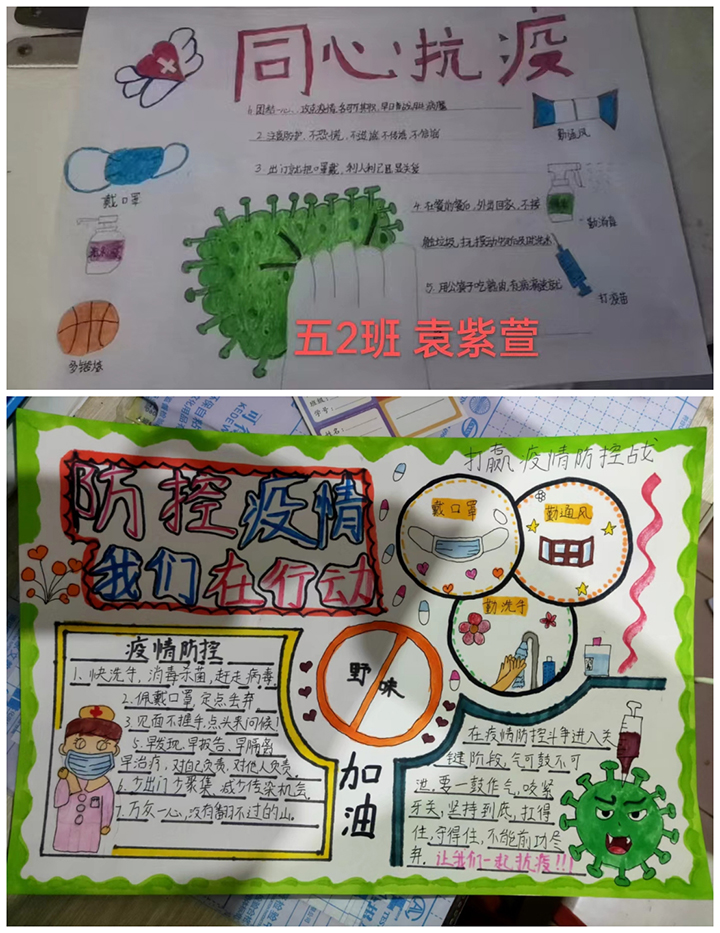 同心抗疫
2. 注意防护，不恐慌，不造谣不传谣，不信谣
3. 出门就把口罩戴，利人利己
勤通风
戴口罩
勤消毒
打疫苗
多锻炼
五2班 袁紫萱
打赢疫情防控战
防控疫情
我们在行动
戴口罩
勤通风
勤洗手
疫情防控
1、快洗手，消毒杀菌，赶走病毒
2.佩戴口罩，定点丢弃
3.见面不握手，点头来问候！
5.早发现，早报告，早隔离
早治疗，对自己负责，对他人负责。
6.少出门少聚集，减少传染机会
7.万众一心，没有翻不过的山。
野味
加油
在疫情防控斗争进入关
键阶段，气可鼓不可
泄，要一鼓作气，咬紧
牙关，坚持到底，扛得
住，守得住，不能前功尽
弃。让我们一起抗疫！！！